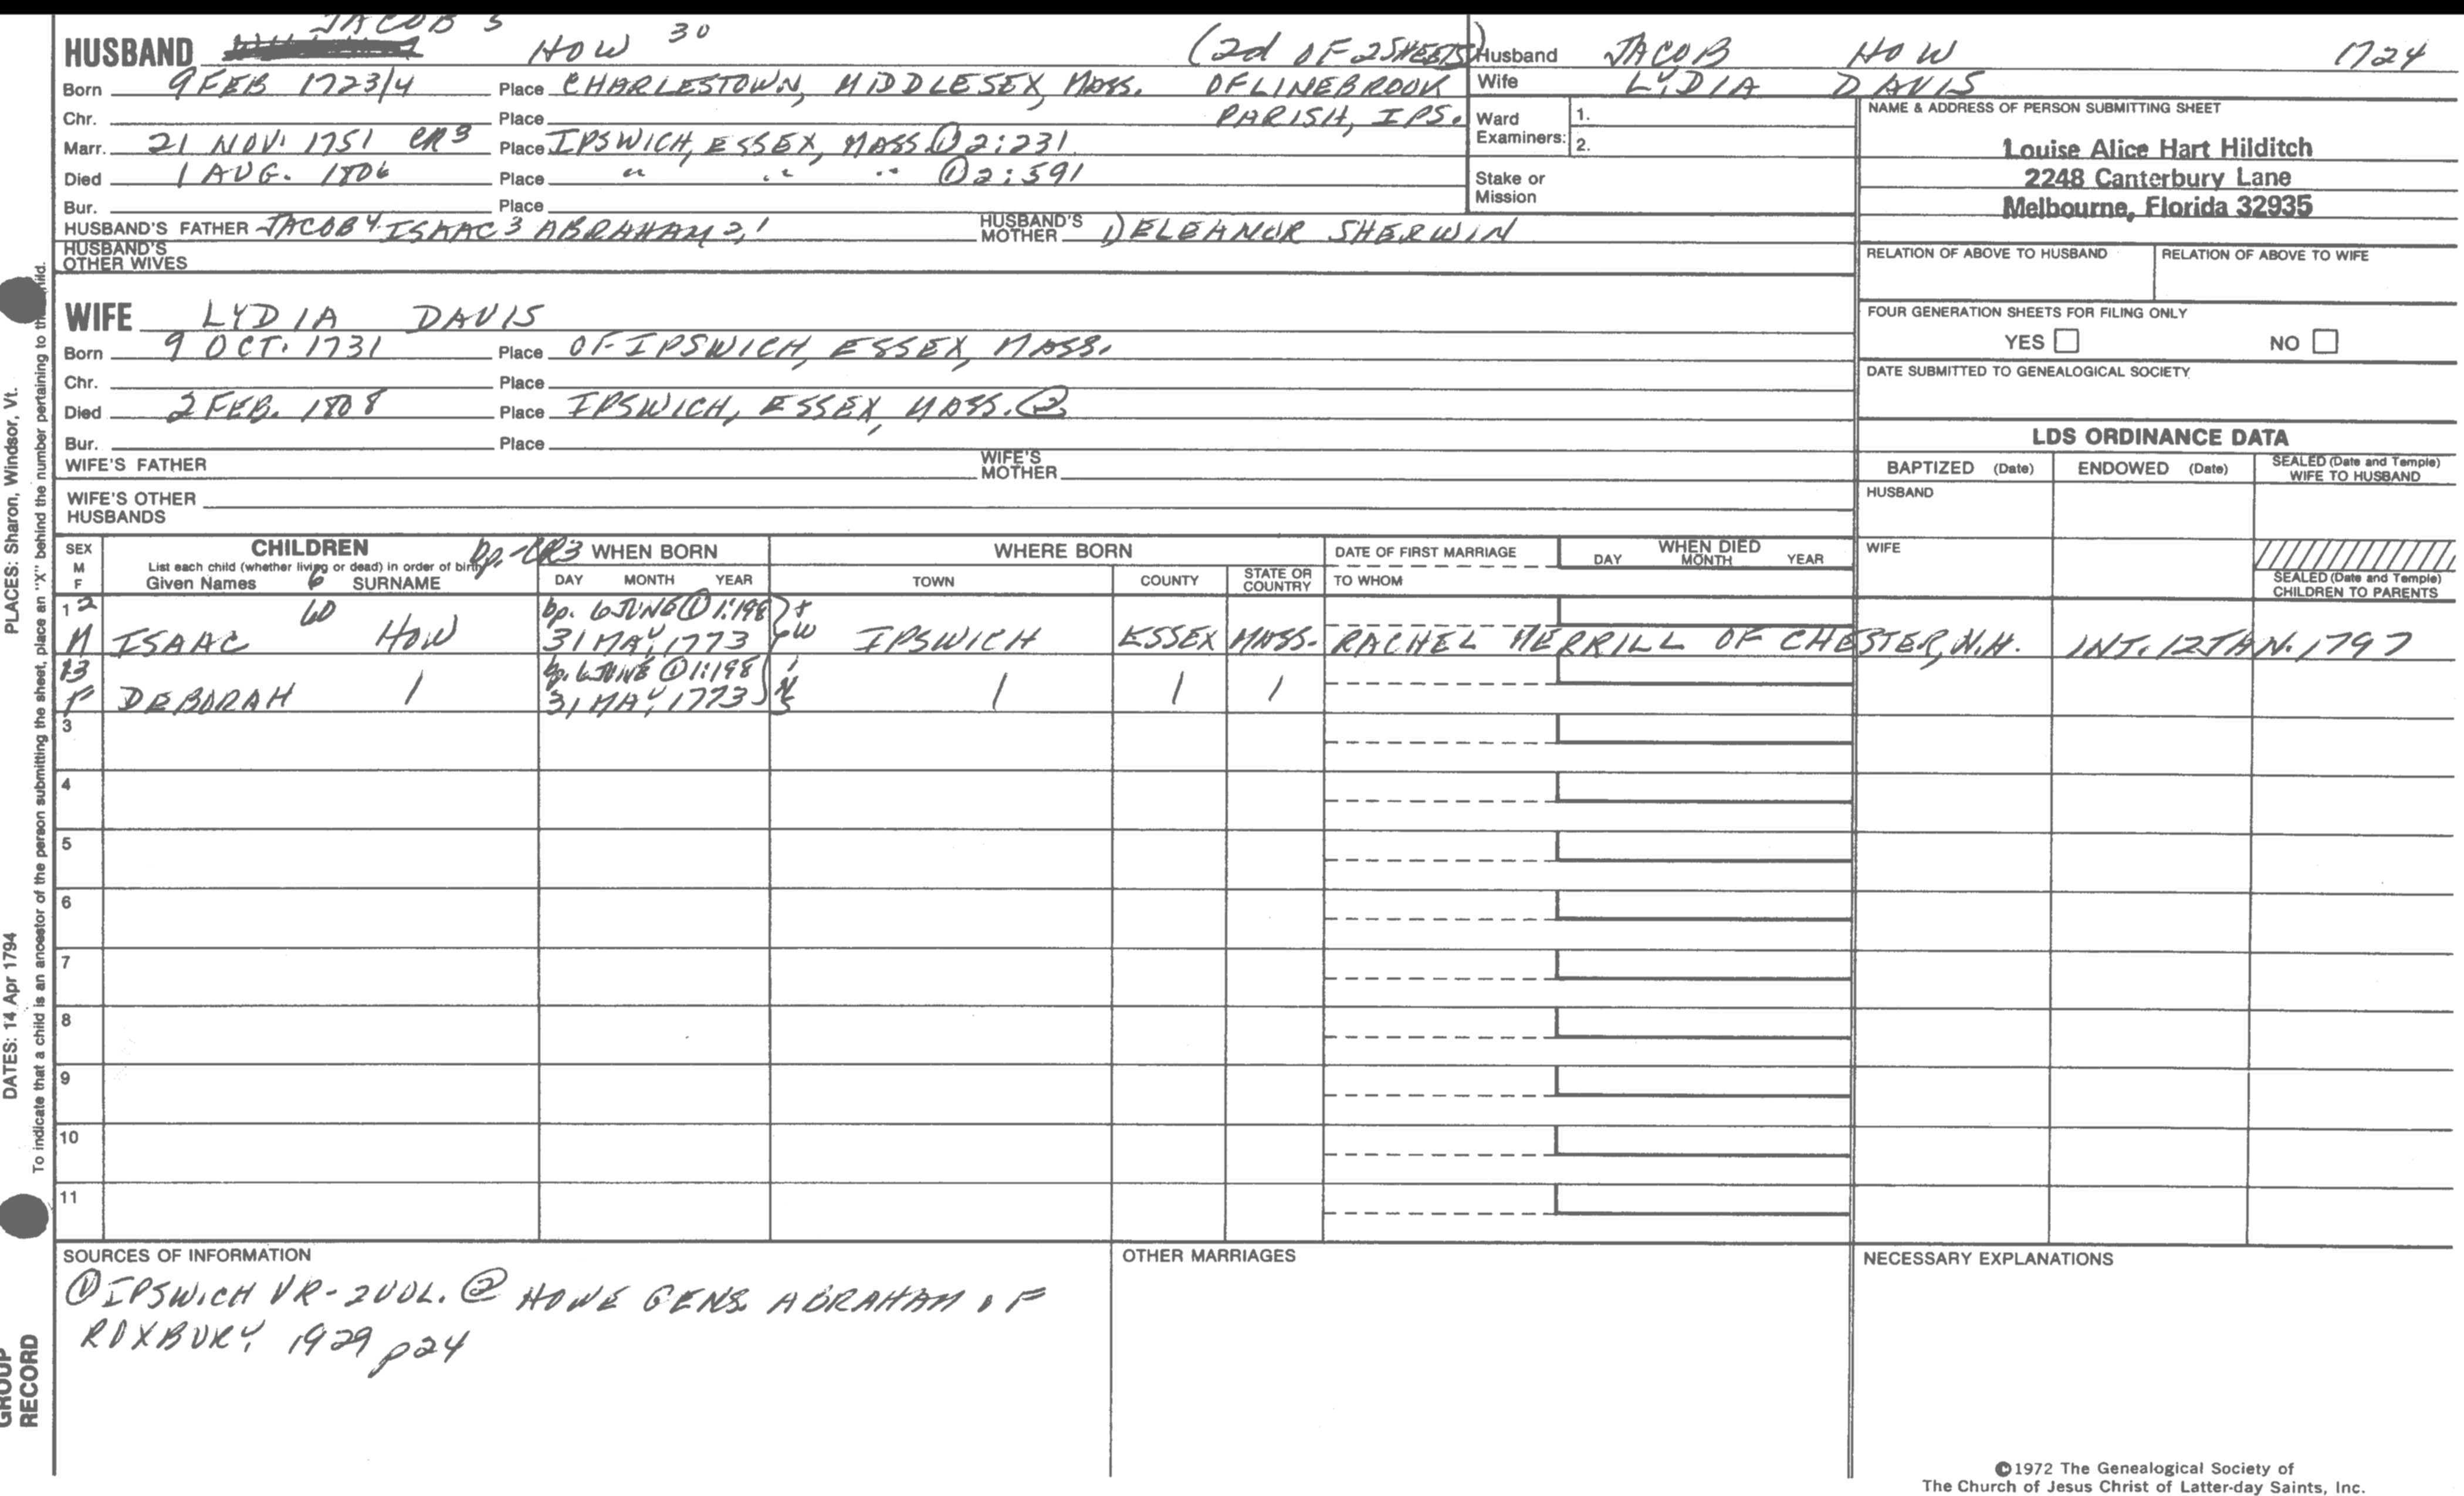 JACOB 5
HUSBAND HOW 30 (2d OF 2 SHEETS)
Born 9 FEB 1723/4 Place CHARLESTOWN, MIDDLESEX, MASS. OF LINEBROOK
Chr. Place PARISH, IPS.
Marr. 21 NOV. 1751 CR3 Place IPSWICH, ESSEX, MASS ① 2:231
Died 1 AUG. 1806 Place " " " ① 2:591
Bur. Place
HUSBAND'S FATHER JACOB 4 ISAAC 3 ABRAHAM 2,1 HUSBAND'S MOTHER 1) ELEANOR SHERWIN
HUSBAND'S OTHER WIVES
Husband JACOB HOW 1724
Wife LYDIA DAVIS
Ward Examiners: 1.
2.
Stake or Mission
NAME & ADDRESS OF PERSON SUBMITTING SHEET
Louise Alice Hart Hilditch
2248 Canterbury Lane
Melbourne, Florida 32935
RELATION OF ABOVE TO HUSBAND RELATION OF ABOVE TO WIFE
FOUR GENERATION SHEETS FOR FILING ONLY
YES NO
DATE SUBMITTED TO GENEALOGICAL SOCIETY
WIFE LYDIA DAVIS
Born 9 OCT. 1731 Place OF IPSWICH, ESSEX, MASS.
Chr. Place
Died 2 FEB. 1808 Place IPSWICH, ESSEX, MASS. ②
Bur. Place
WIFE'S FATHER WIFE'S MOTHER
WIFE'S OTHER HUSBANDS
LDS ORDINANCE DATA
BAPTIZED (Date) ENDOWED (Date) SEALED (Date and Temple) WIFE TO HUSBAND
HUSBAND
WIFE
SEALED (Date and Temple) CHILDREN TO PARENTS
SEX M F CHILDREN bp.-CR3 WHEN BORN WHERE BORN DATE OF FIRST MARRIAGE WHEN DIED
List each child (whether living or dead) in order of birth
Given Names 6 SURNAME DAY MONTH YEAR TOWN COUNTY STATE OR COUNTRY TO WHOM DAY MONTH YEAR
1 2 bp. 6 JUNE ① 1:198
M ISAAC HOW 31 MAY 1773 tw IPSWICH ESSEX MASS. RACHEL MERRILL OF CHESTER, N.H. INT. 12 JAN. 1797
13 bp. 6 JUNE ① 1:198
F DEBORAH / 31 MAY 1773 / / /
3
4
5
6
7
8
9
10
11
SOURCES OF INFORMATION
① IPSWICH VR - 2 VOL. ② HOWE GENS. ABRAHAM OF
ROXBURY 1929 p24
OTHER MARRIAGES
NECESSARY EXPLANATIONS
©1972 The Genealogical Society of
The Church of Jesus Christ of Latter-day Saints, Inc.
PLACES: Sharon, Windsor, Vt.
DATES: 14 Apr 1794
To indicate that a child is an ancestor of the person submitting the sheet, place an "X" behind the number pertaining to
GROUP
RECORD